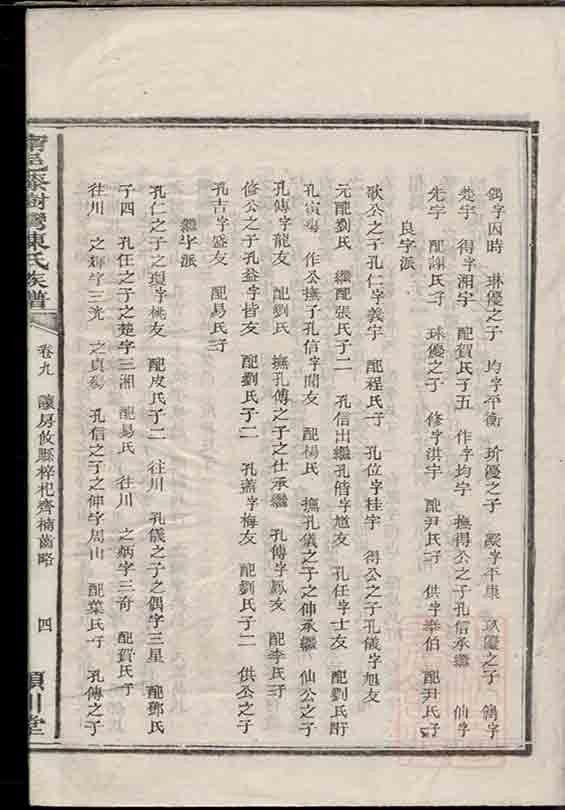 鴒字因時 琳優之子 均字平衡 玠優之子 字平康 玖優之子 鴒字
楚字 得字湘宇 配賀氏子五 作字均宇 撫得公之子孔信承繼 仙字
先宇 配謝氏子 球優之子 修字洪宇 配尹氏子 供字泰伯 配尹氏子
良字派
歌公之子孔仁字義宇 配程氏子 孔位字桂宇 得公之子孔儀字旭友
元配劉氏 繼配張氏子二 孔信出繼孔偕字馗友 孔任字士友 配劉氏
孔寅殤 作公撫子孔信字聞友 配楊氏 撫孔儀之子之伸承繼 仙公之子
孔傳字龍友 配劉氏 撫孔傅之子之仕承繼 孔傅字鳳友 配李氏子
修公之子孔益字皆友 配劉氏子二 孔蓋字梅友 配劉氏子二 供公之子
孔吉字盛友 配易氏子
繼字派
孔仁之子之瓊字桃友 配皮氏子二 往川 孔儀之子之偶字三星 配鄧氏
子四 孔任之子之楚字三湘 配易氏 往川 之炳字三奇 配賀氏子
往川 之輝字三光 之貞殤 孔信之子之伸字周山 配葉氏子 孔傳之子
甯邑泰樹灣陳氏族譜
卷九 讓房攸縣梓杞齊楠齒略 四
潁川堂